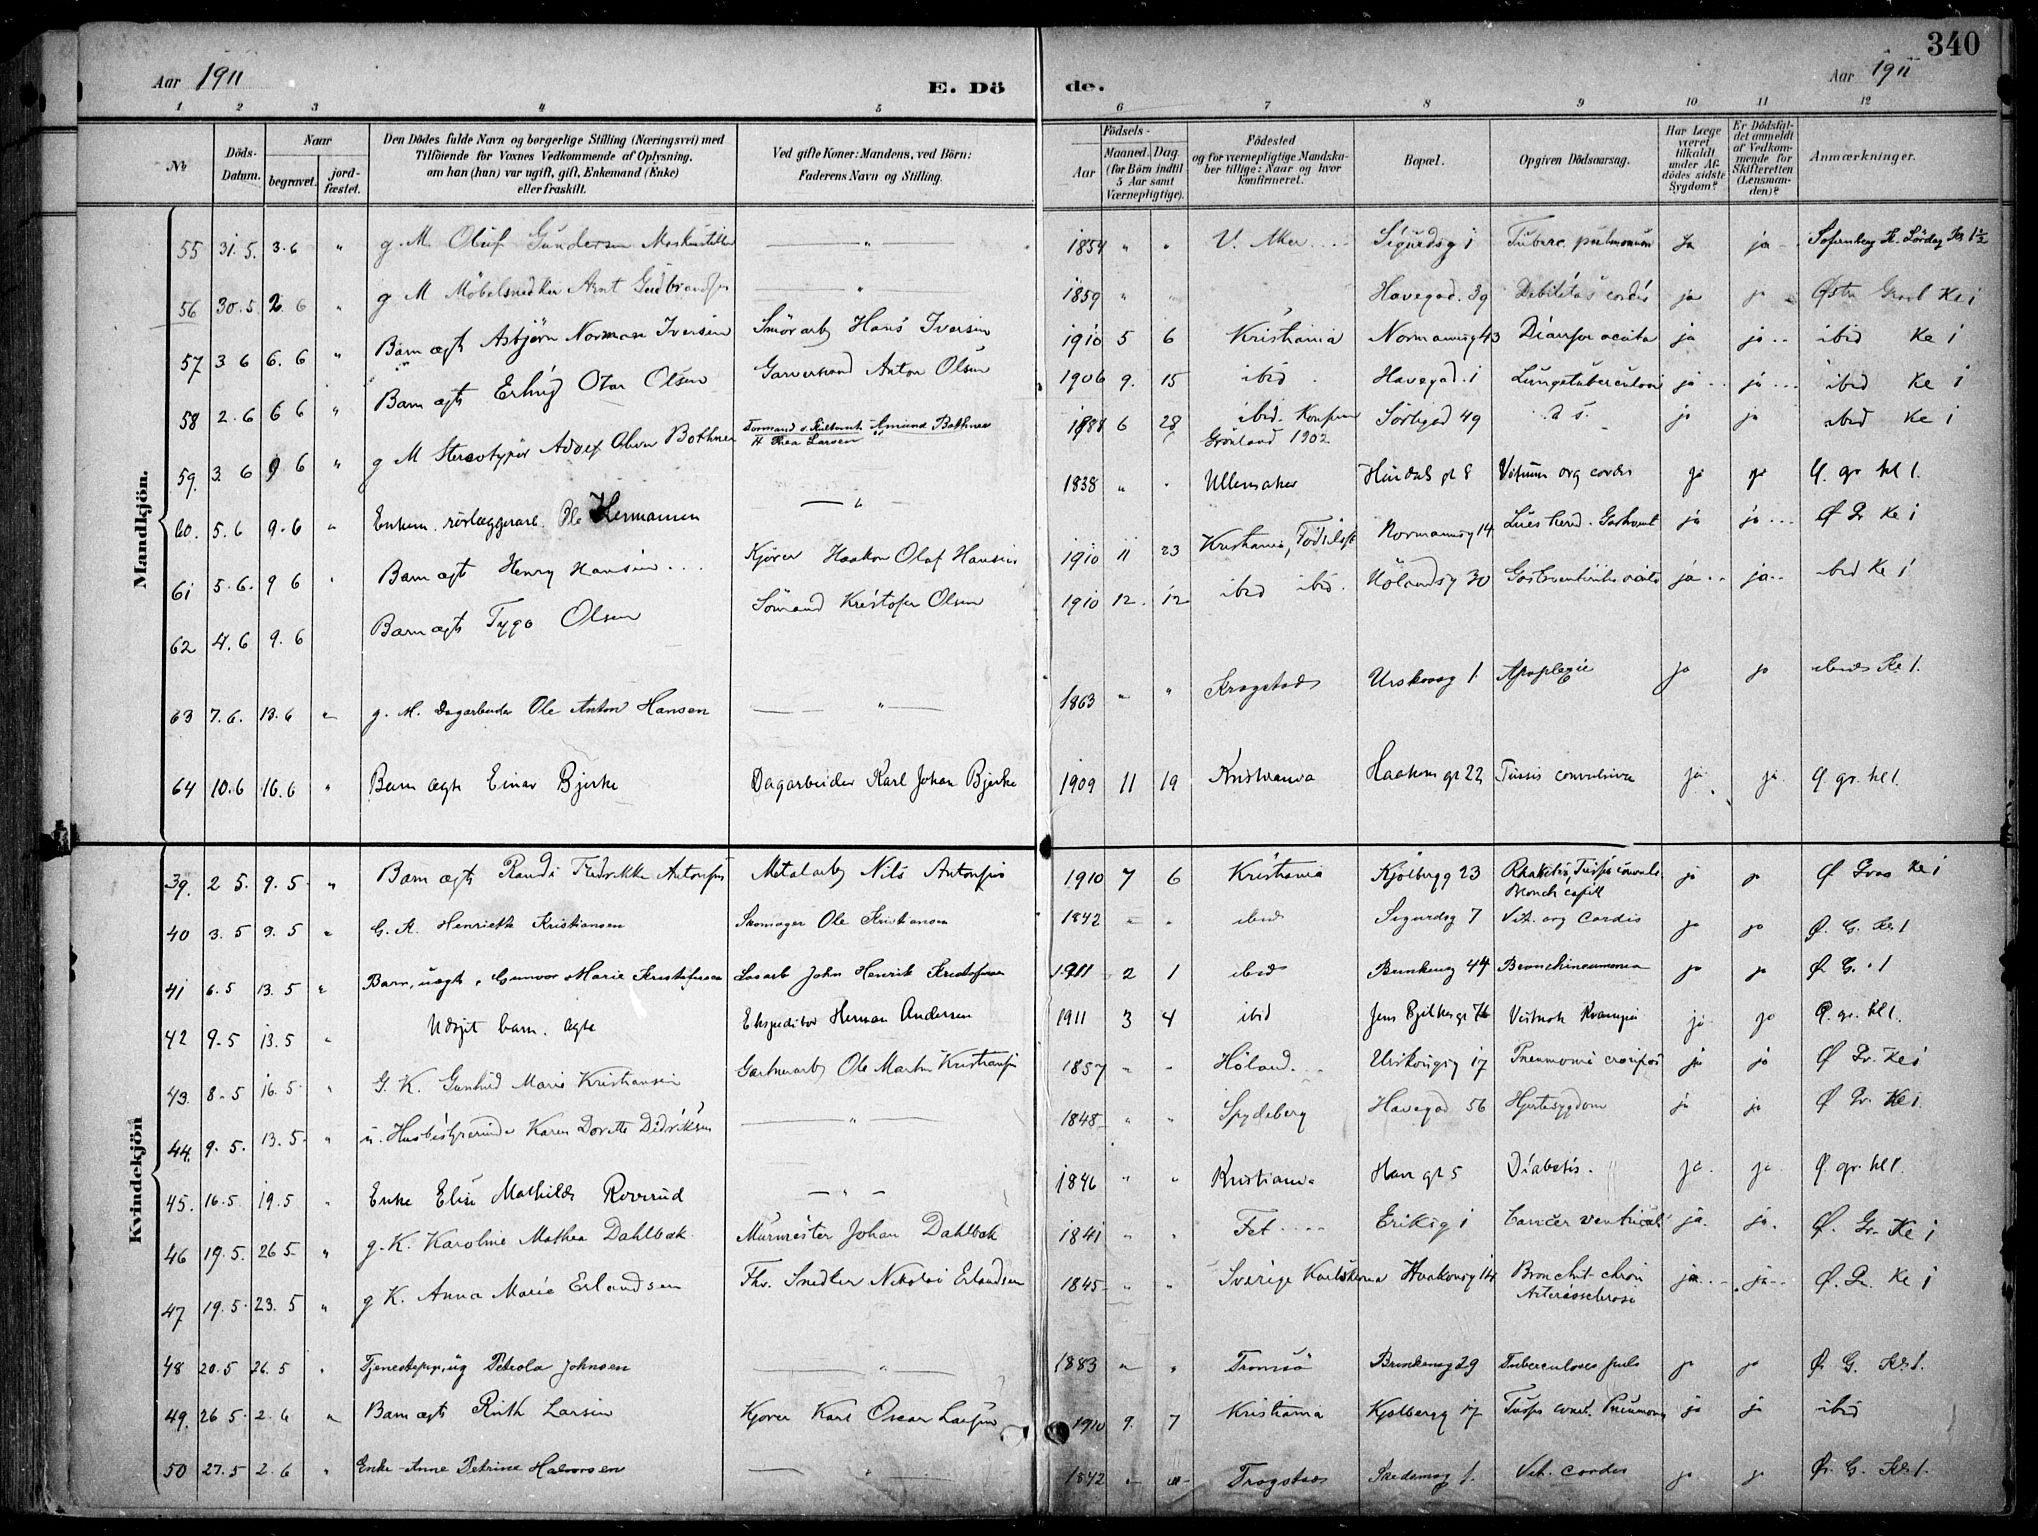 340
Aar 1911 E. Dö de. Aar 1911
1 2 3 4 5 6 7 8 9 10 11 12
№ Döds-Datum. Naar begravet. jord-fæstet. Den Dödes fulde Navn og borgerlige Stilling (Næringsvei) med Tilföiende for Voxnes Vedkommende af Oplysning, om han (hun) var ugift, gift, Enkemand (Enke) eller fraskilt. Ved gifte Koner: Mandens, ved Börn: Faderens Navn og Stilling. Födsels- Aar Maaned. Dag (for Börn indtil 5 Aar samt Værnepligtige). Födested og for værnepligtige Mandskaber tillige: Naar og hvor konfirmeret. Bopæl. Opgiven Dödsaarsag. Har Læge været tilkaldt under Afdödes sidste Sygdom? Er Dödsfaldet anmeldt af Vedkommende for Skifteretten (Lensmanden)? Anmærkninger.
Mandkjön.
55 31. 5. 3. 6 " g. M. Oluf Gundersen — " — 1854 " " V. Aker Sigurdsg 1 Tuberc. pulmonum Ja ja Sofienberg K. Lørdag Kl 1½
56 30. 5 2 6 " g M Möbelsnedker Arnt Gudbrandsen — " — 1859 " " Havegad. 39 Debilitas cordis ja ja Østre Grav Kl 1
57 3 6 6. 6 " Barn ægte Asbjörn Norman Iversen Smörarb Hans Iversen 1910 5 6 Kristiania Normannsg 43 Diarrhoe acuta ja ja ibid Kl 1
58 2. 6 6 6 " Barn ægte Erling Olsen Garversvend Anton Olsen 1906 9. 15 ibid Havegad. 1 Lungetuberculose ja ja ibid Kl 1
59. 3. 6 9 6 " g M Stereotypör Adolf Oliver Bothner Amund Bothner H Thea Larsen 1881 6 28 ibid. Konfirm Grönland 1902 Sörligad 49 d s. ja ja ibid Kl 1
60. 5. 6 9. 6 " Enkem. rörlæggerarb. Ole Hermansen — " 1838 " " Ullensaker Heimdals gt 8 Vitium org cordis ja ja Ø. gr. kl 1.
61 5. 6. 9 6 " Barn ægte Henry Hansen Kjörer Haakon Olaf Hansen 1910 11 23 Kristiania, Födselsst Normannsg 14 Lues hered. ja ja Ø Gr Kl 1
62 4. 6 9. 6 Barn ægte Tygo Olsen Sömand Kristofer Olsen 1910 12. 12 ibid ibid. Hölandsg 30 Gastroenteritis acuta ja ja ibid Kl 1
63 7. 6. 13. 6 " g. M. Dagarbeider Ole Anton Hansen — " — 1863 " " Krogstad Urskovsg 1. Apoplexie ja ja ibid Kl 1.
64 10. 6 16. 6 " Barn ægte Einar Bjerke Dagarbeider Karl Johan Bjerke 1909 11 19 Kristiania Haakons gt 22 Tussis convulsiva ja ja Ø. gr. kl 1.
Kvindekjön
39. 2 5. 9. 5 " Barn ægte Randi Fredrikke Antonsen Metalarb Nils Antonsen 1910 7 6 Kristiania Kjölbergg 23 Rhakitis, Tussis convuls. Bronch capill ja ja Ø Grav Kl 1
40 3. 5 9. 5 " G. K. Henriette Kristiansen Skomager Ole Kristiansen 1842 " " ibid Sigurdsg 7 Vit. org cordis ja ja Ø. G. Kl 1
41 6. 5 13. 5 " Barn, uægte, Gunvor Marie Kristofersen Losarb John Henrik Kristofersen 1911 2 1 ibid Brinkeng 44 Bronchineumonia ja ja Ø. G. " 1
42 9. 5 13. 5 " Udøpt barn. ægte Ekspeditör Herman Andersen 1911 3 4 ibid Jens Bjelkes gt 76 Vistnok Krampe ja ja Ø. gr. kl 1.
43. 8. 5 16. 5 " G. K. Gunhild Marie Kristiansen Gartnerarb Ole Martin Kristiansen 1857 " " Höland Urskovsg 17 Pneumoni crouposa ja ja Ø Gr. Kl 1
44. 9. 5. 13. 5 " u. Husbestyrerinde Karen Dorette Didriksen — " — 1848 " " Spydeberg Havegad 56 Hjertesygdom ja ja Ø Gr. Kl 1
45. 16. 5 19. 5 " Enke Elise Mathilde Roverud — " — 1846 " " Kristiania Have gt 5 Diabetis. ja. ja. Ø. gr. kl 1.
46 19. 5. 26 5 " g. K. Karoline Mathea Dahlbak Murmester Johan Dahlbak 1841 " " Fet Eriksg 1 Cancer ventricul. ja. ja. Ø. Gr. Kl 1
47 19. 5. 23. 5 " g K. Anna Marie Erlandsen Fhv. Snedker Nikolai Erlandsen 1845 " " Sverige Karlskrona Haakonsg 14 Bronchit chron Arteriosclerose ja ja Ø. Gr Kl 1
48 20. 5 26. 5 " Tjenestepige, ug Petrola Johnsen — " — 1883 " " Tromsö Brinkensg 29 Tuberculosis pulm ja ja Ø. G. Kl 1.
49. 26 5. 2. 6 " Barn ægte Ruth Larsen Kjörer Karl Oscar Larsen 1910 9. 7 Kristiania Kjölbergg 17 Tussis conv. Pneumoni ja ja ibid
50 27. 5 2. 6 " Enke Anne Petrine Halvorsen — " — 1842 " " Trogstad Skedsmog 1. Vit. cordis ja ja Ø. G. Kl 1.